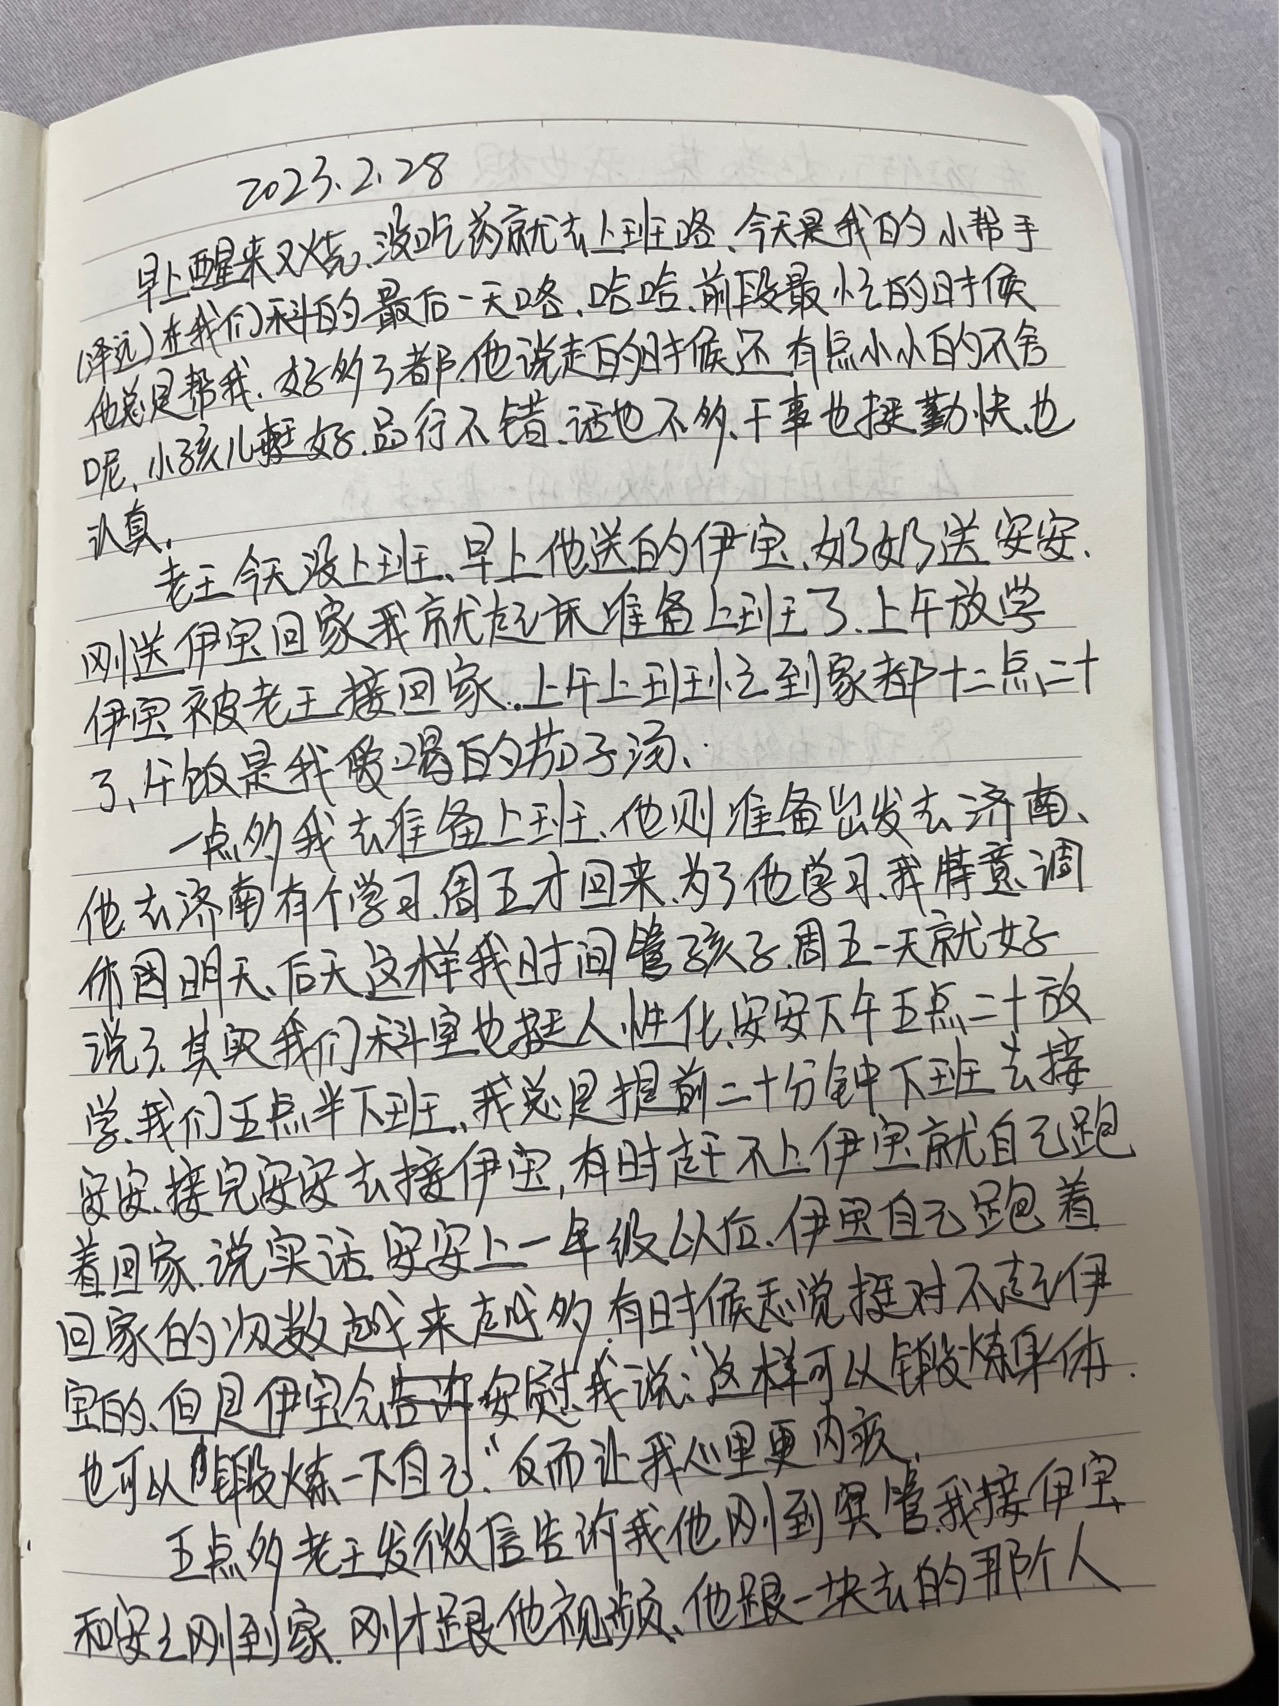 2023.2.28
早上醒来又烧,没吃药就去上班咯、今天是我的小帮手
(泽远)在我们科的最后一天咯、哈哈、前段最忙的时候
他总是帮我、好多了都、他说走的时候还有点小小的不舍
呢、小孩儿挺好、品行不错、话也不多、干事也挺勤快、也
认真,
老王今天没上班、早上他送的伊宝、奶奶送安安、
刚送伊宝回家我就起床准备上班了、上午放学
伊宝被老王接回家、上午上班忙到家都十二点二十
了、午饭是我爱喝的茄子汤、
一点多我去准备上班、他则准备出发去济南、
他去济南有个学习、周五才回来、为了他学习、我特意调
休图明天、后天、这样我时间管孩子、周五一天就好
说了、其实我们科室也挺人性化、安安下午五点二十放
学、我们五点半下班、我总是提前二十分钟下班去接
安安、接完安安去接伊宝,有时赶不上伊宝就自己跑
着回家、说实话、安安上一年级以位、伊宝自己跑着
回家的次数越来越多、有时候总觉挺对不起伊
宝的、但是伊宝会安慰我说:“这样可以锻炼身体.
也可以锻炼一下自己、”反而让我心里更内疚、
五点多老王发微信告诉我他刚到宾管、我接伊宝
和安安刚到家、刚才跟他视频、他跟一块去的那个人